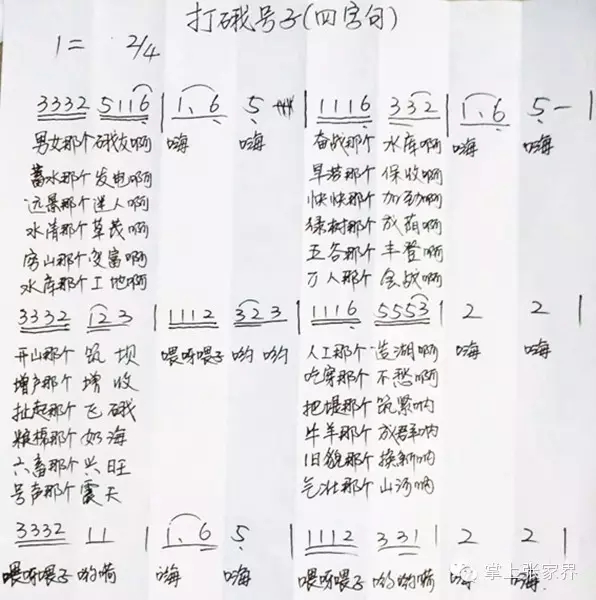 打硪号子(四字句)
1= 2/4
3332 5116 | 1·6 5 | 1116 332 | 1·6 5- |
男女那个硪友啊 嗨 嗨 奋战那个 水库啊 嗨 嗨
蓄水那个发电啊 旱涝那个 保收啊
远景那个迷人啊 快快那个 加劲啊
水清那个草茂啊 绿树那个 成荫啊
穷山那个变富啊 五谷那个 丰登啊
水库那个工地啊 万人那个 会战啊
3332 123 | 1112 323 | 1116 5553 | 2 2 |
开山那个 筑坝 喂呀喂子 哟哟 人工那个 造湖啊 嗨 嗨
增产那个 增收 吃穿那个 不愁啊
扯起那个 飞硪 把堤那个 筑紧呐
粮棉那个 如海 牛羊那个 成群呐
六畜那个 兴旺 旧貌那个 换新呐
号声那个 震天 气壮那个 山河呐
3332 11 | 1·6 5 | 1112 331 | 2 2 |
喂呀喂子 哟嗬 嗨 嗨 喂呀喂子 哟哟嗬 嗨 嗨
掌上张家界